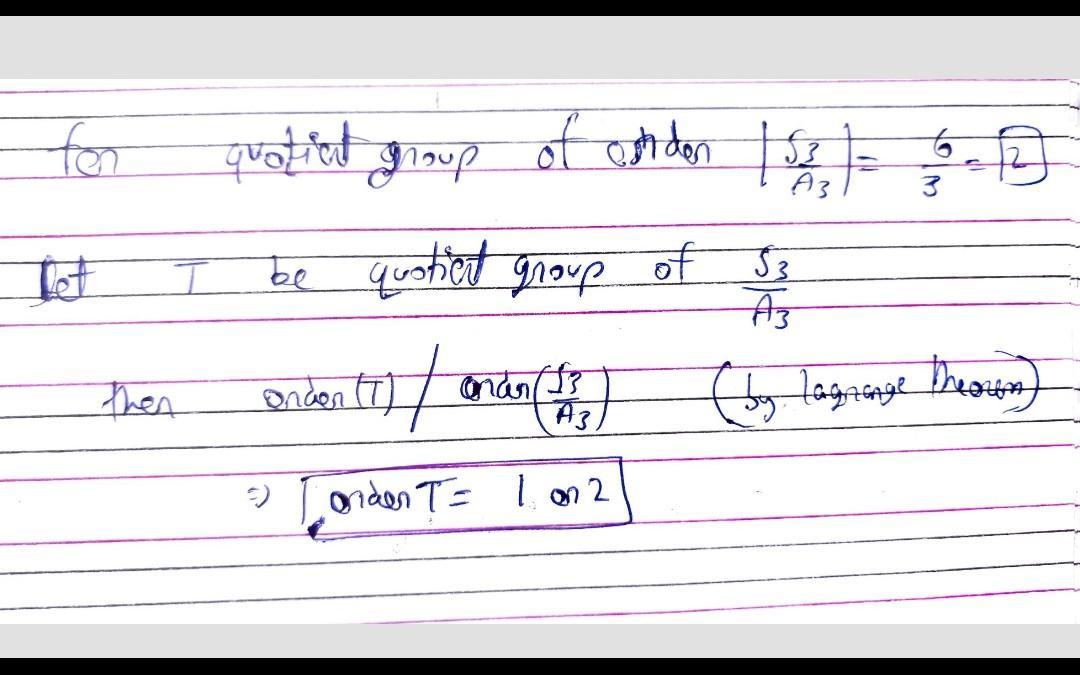 for quotient group of order |S3/A3| = 6/3 = 2
Let T be quotient group of S3/A3
then order (T) / order (S3/A3) (by lagrange theorem)
⇒ order T = 1 or 2